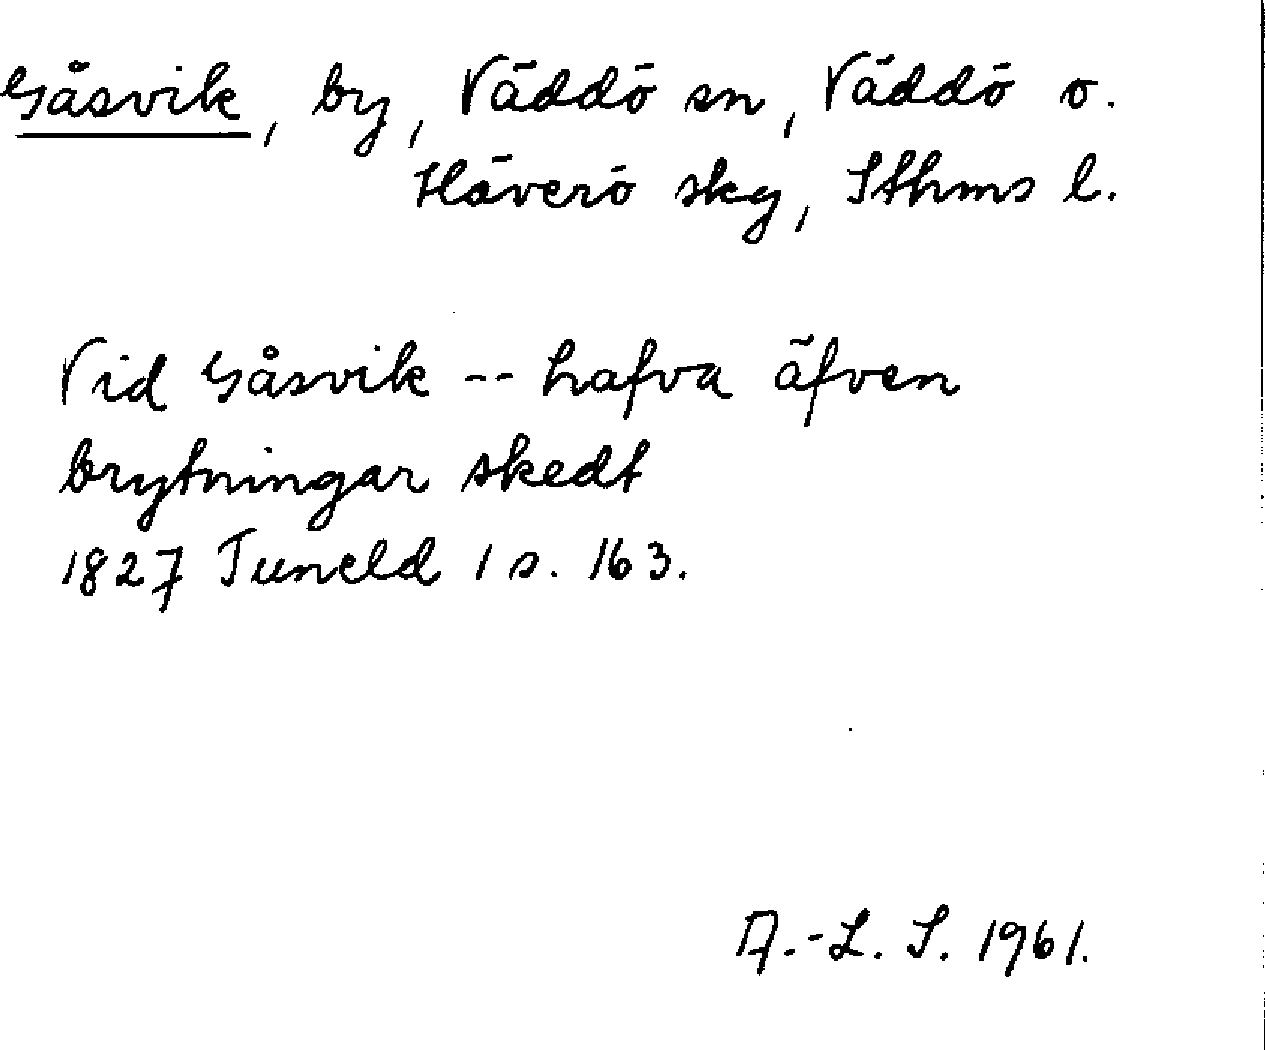 Gåsvik, by, Väddö sn, Väddö o.
Häverö skg, Sthms l.
Vid Gåsvik -- hafva äfven
brytningar skedt
1827 Tuneld 1 s. 163.
A.-L. S. 1961.